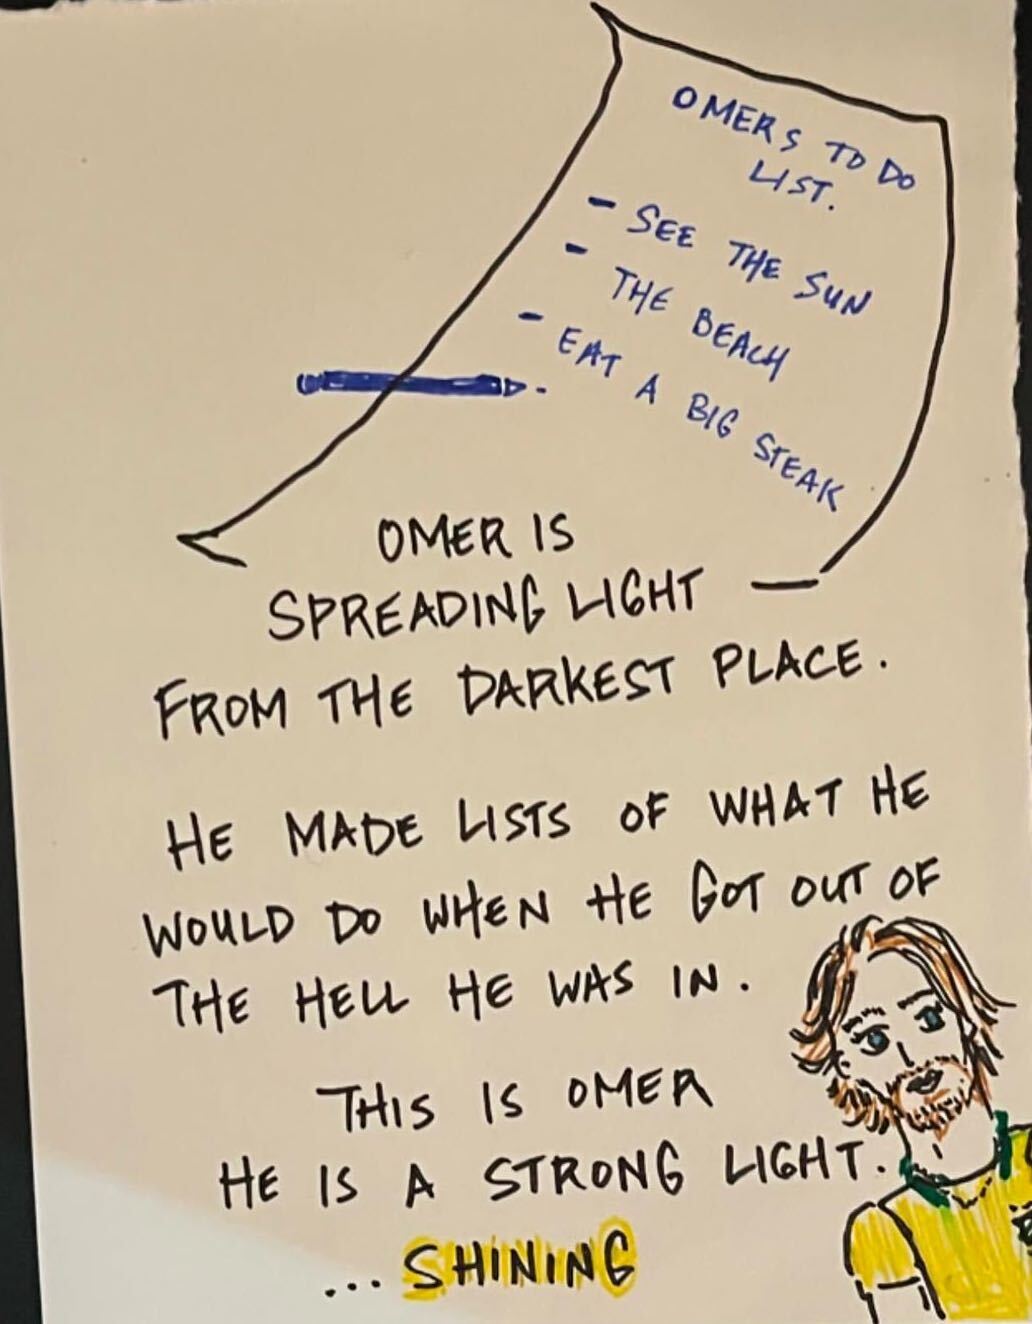 OMERS TO DO
LIST.
- SEE THE SUN
- THE BEACH
- EAT A BIG STEAK
OMER IS
SPREADING LIGHT —
FROM THE DARKEST PLACE.
HE MADE LISTS OF WHAT HE
WOULD DO WHEN HE GOT OUT OF
THE HELL HE WAS IN.
THIS IS OMER
HE IS A STRONG LIGHT.
... SHINING